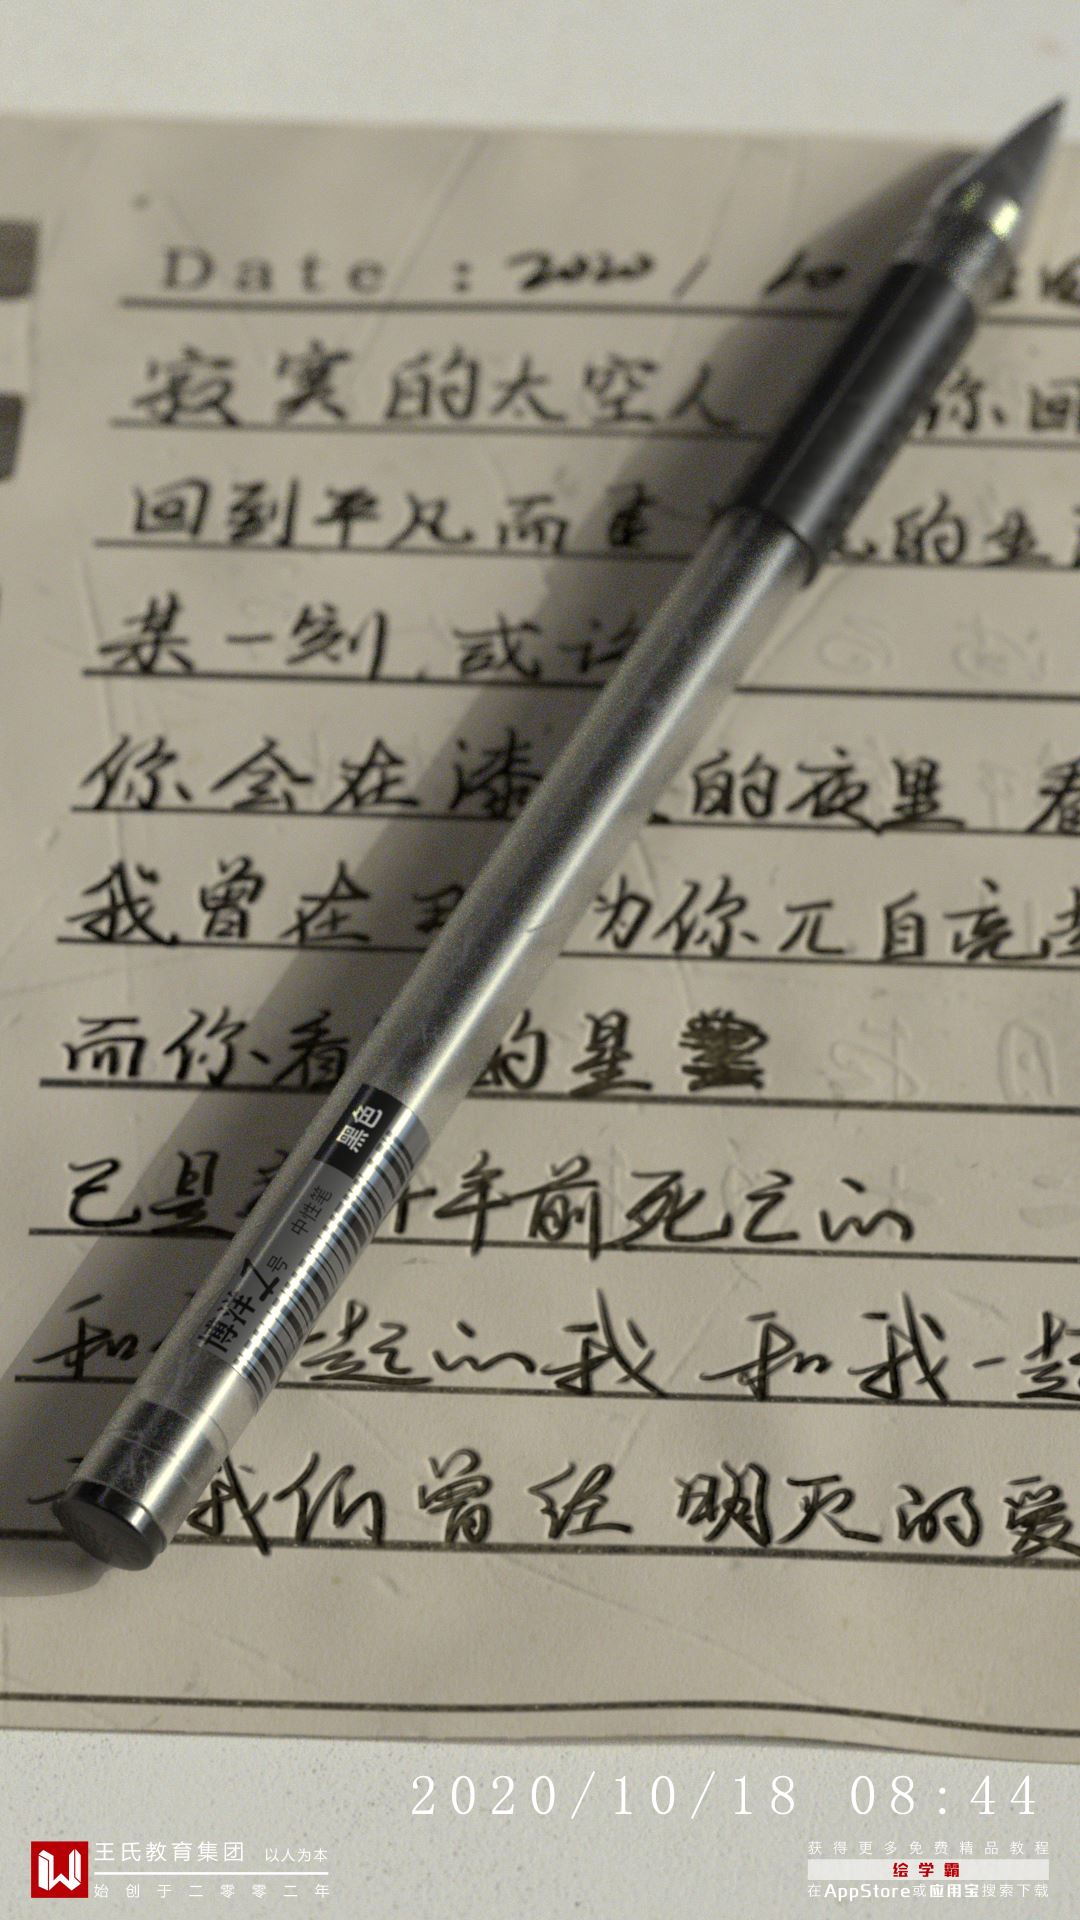 Date : 2020 / 10
寂寞的太空人 你回
回到平凡而 的生
某一刻，或许
你会在漆 的夜里 看
我曾在 为你兀自亮
而你看 的星
已是 年前死亡的
和 一起的我 和我一起
我们曾经明灭的爱
黑色
中性笔
博洋7号
2020/10/18 08:44
王氏教育集团 以人为本
始创于二零零二年
获得更多免费精品教程
绘学霸
在AppStore或应用宝搜索下载